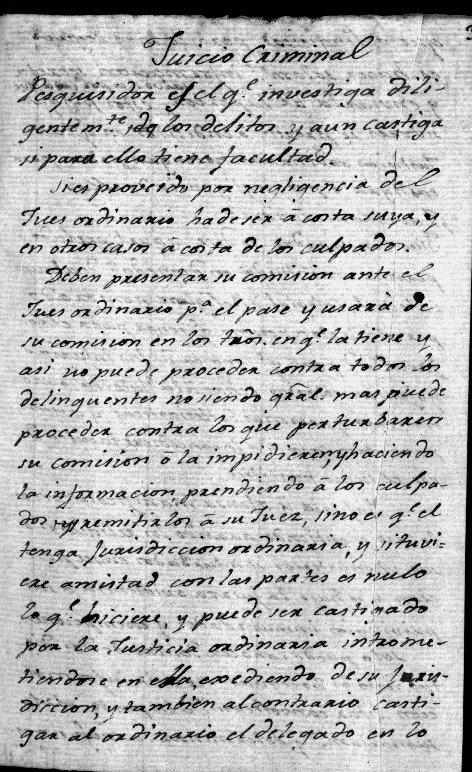 Juicio Criminal
Pesquisidor es el q.e investiga dili-
gentem.te los delitos y aun castiga
si para ello tiene facultad.
Si es proveido por negligencia del
Jues ordinario ha de ser â costa suya, y
en otros casos â costa de los culpados.
Deben presentar su comision ante el
Jues ordinario p.a el pase y usarà de
su comision en los trños. en q.e la tiene y
asi no puede proceder contra todos los
delinquentes no siendo gral. mas puede
proceder contra los que perturbaren
su comision ô la impidieren, y haciendo
la informacion, prendiendo â los culpa-
dos, y remitirlos â su Juez, sino es q.e el
tenga Jurisdiccion ordinaria, y si tuvi-
ere amistad con las partes es nulo
lo q.e hiciere, y puede ser castigado
por la Justicia ordinaria introme-
tiendose en ella, exediendo de su Juris-
diccion, y tambien al contrario casti-
gar al ordinario el delegado en lo